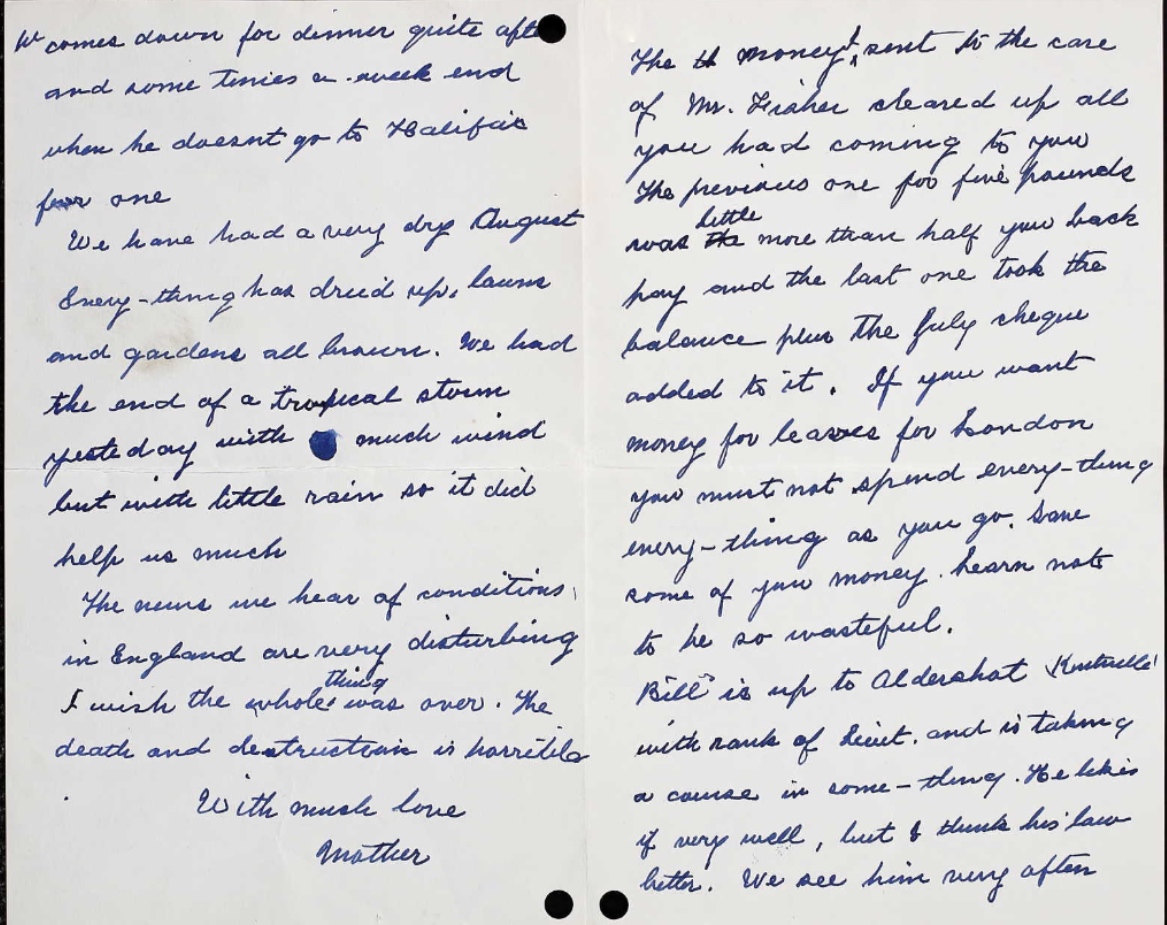 W comes down for dinner quite afte
and some times a week end
when he doesnt go to Halifax
for one
We have had a very dry August
Every-thing has dried up, lawns
and gardens all brown. We had
the end of a tropical storm
yesteday with much wind
but with little rain so it did
help us much
The news we hear of conditions
in England are very disturbing
I wish the whole thing was over. The
death and destruction is horrible
With much love
Mother
The th money I sent to the care
of Mr. Fraher cleared up all
you had coming to you
The previous one for five pounds
was the little more than half you back
pay and the last one took the
balance plus the July cheque
added to it. If you want
money for leaves for London
you must not spend every-thing
every-thing as you go. Save
some of you money. Learn not
to be so wasteful.
Bill is up to Aldershot Kentville
with rank of Lieut. and is taking
a course in some-thing. He likes
it very well, but I think his law
better. We see him very often